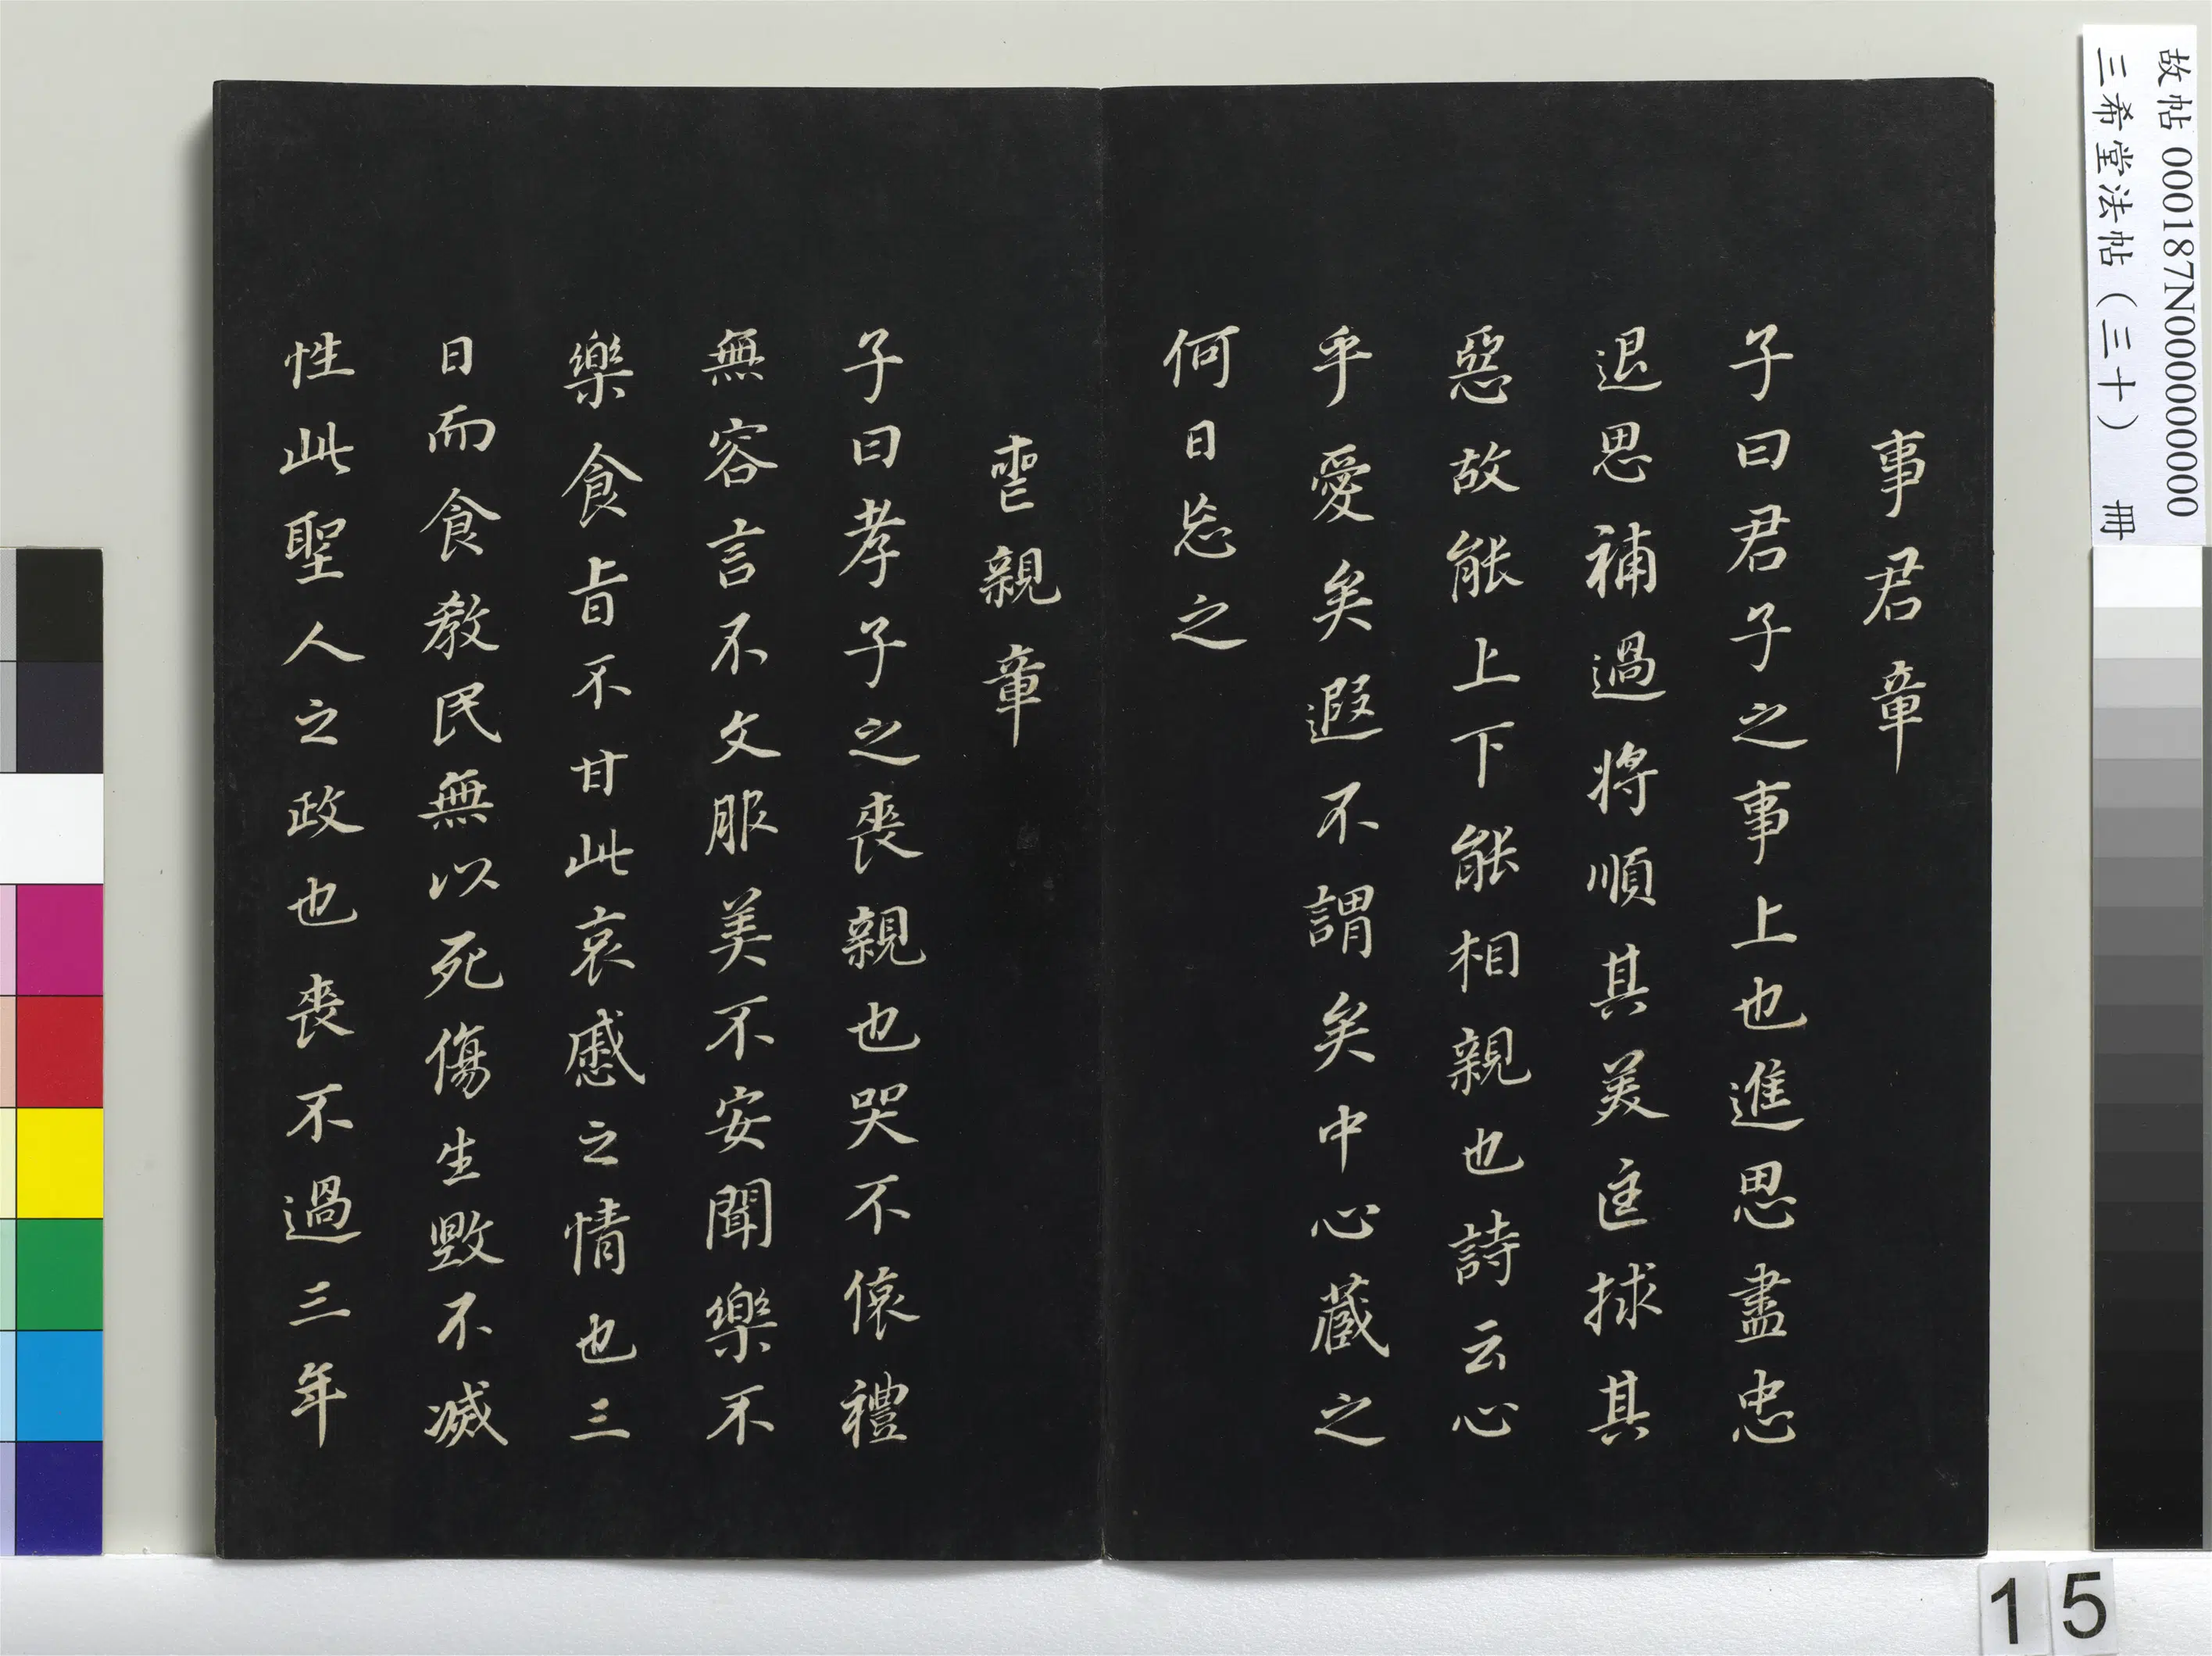 事君章
子曰君子之事上也進思盡忠
退思補過將順其美匡捄其
惡故能上下能相親也詩云心
乎愛矣遐不謂矣中心藏之
何日忘之
喪親章
子曰孝子之喪親也哭不偯禮
無容言不文服美不安聞樂不
樂食旨不甘此哀慼之情也三
日而食教民無以死傷生毀不滅
性此聖人之政也喪不過三年
故帖 000187N000000000
三希堂法帖（三十） 冊
15